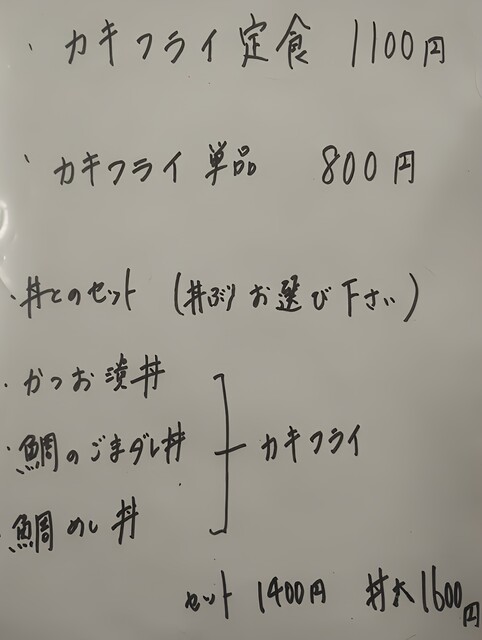 ・カキフライ定食 1100円
・カキフライ単品 800円
・丼とのセット (丼ぶりお選び下さい)
・かつお漬丼
・鯛のごまダレ丼
・鯛めし丼
カキフライ
セット 1400円 丼大1600円